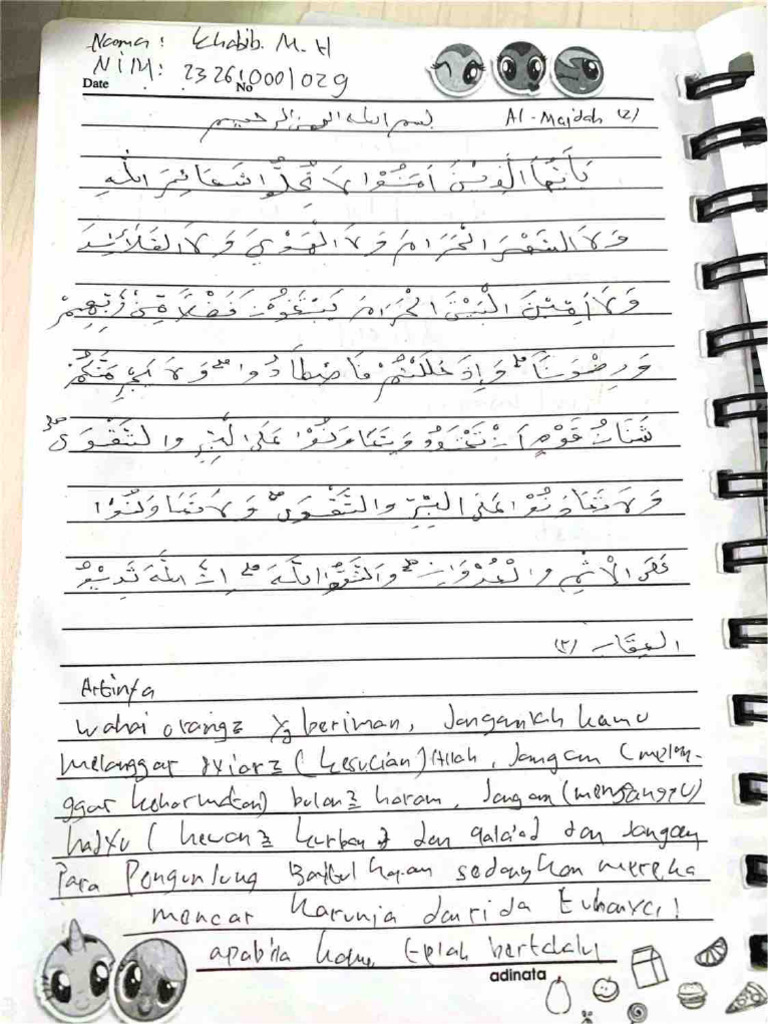 Nama : Khabib. M. H
NIM : 23261.0001029
Date No
بسم الله الرحمن الرحيم Al-Maidah (2)
يَأَيُّهَا الَّذِيْنَ آمَنُوْا لَا تُحِلُّوْا شَعَائِرَ اللّٰهِ
وَلَا الشَّهْرَ الْحَرَامَ وَلَا الْهَدْيَ وَلَا الْقَلَائِدَ
وَلَا آمِّيْنَ الْبَيْتَ الْحَرَامَ يَبْتَغُوْنَ فَضْلًا مِّنْ رَّبِّهِمْ
وَرِضْوَنًا وَإِذَ حَلَلْتُمْ فَاصْطَادُوْا وَلَا يَجْرِمَنَّكُمْ
شَنَاٰنُ قَوْمٍ اَنْ تَعْتَدُوْ وَتَعَاوَنُوْا عَلَى الْبِرِّ والتَّقْوَى
وَلَا تَعَاوَنُوْا عَلَى البِرِّ والتَّقْوَى وَلَا تَعَاوَنُوْا
الْاِثْمِ والْعُدْوَانِ وَاتَّقُوْا اللّٰهَ اِنَّ اللّٰهَ شَدِيْدُ
العِقَابِ (٢)
Artinya
Wahai orang2 yg beriman, Janganlah kamu
melanggar syiar2 (kesucian) Allah, Jangan (melan-
ggar kehormatan) bulan2 haram, Jangan (mengganggu)
hadyu (hewan2 kurban) dan qala'id dan Jangan
Para Pengunjung Baitul haram sedangkan mereka
mencar karunia dari Tuhanya!
apabila kamu telah bertahalul
adinata